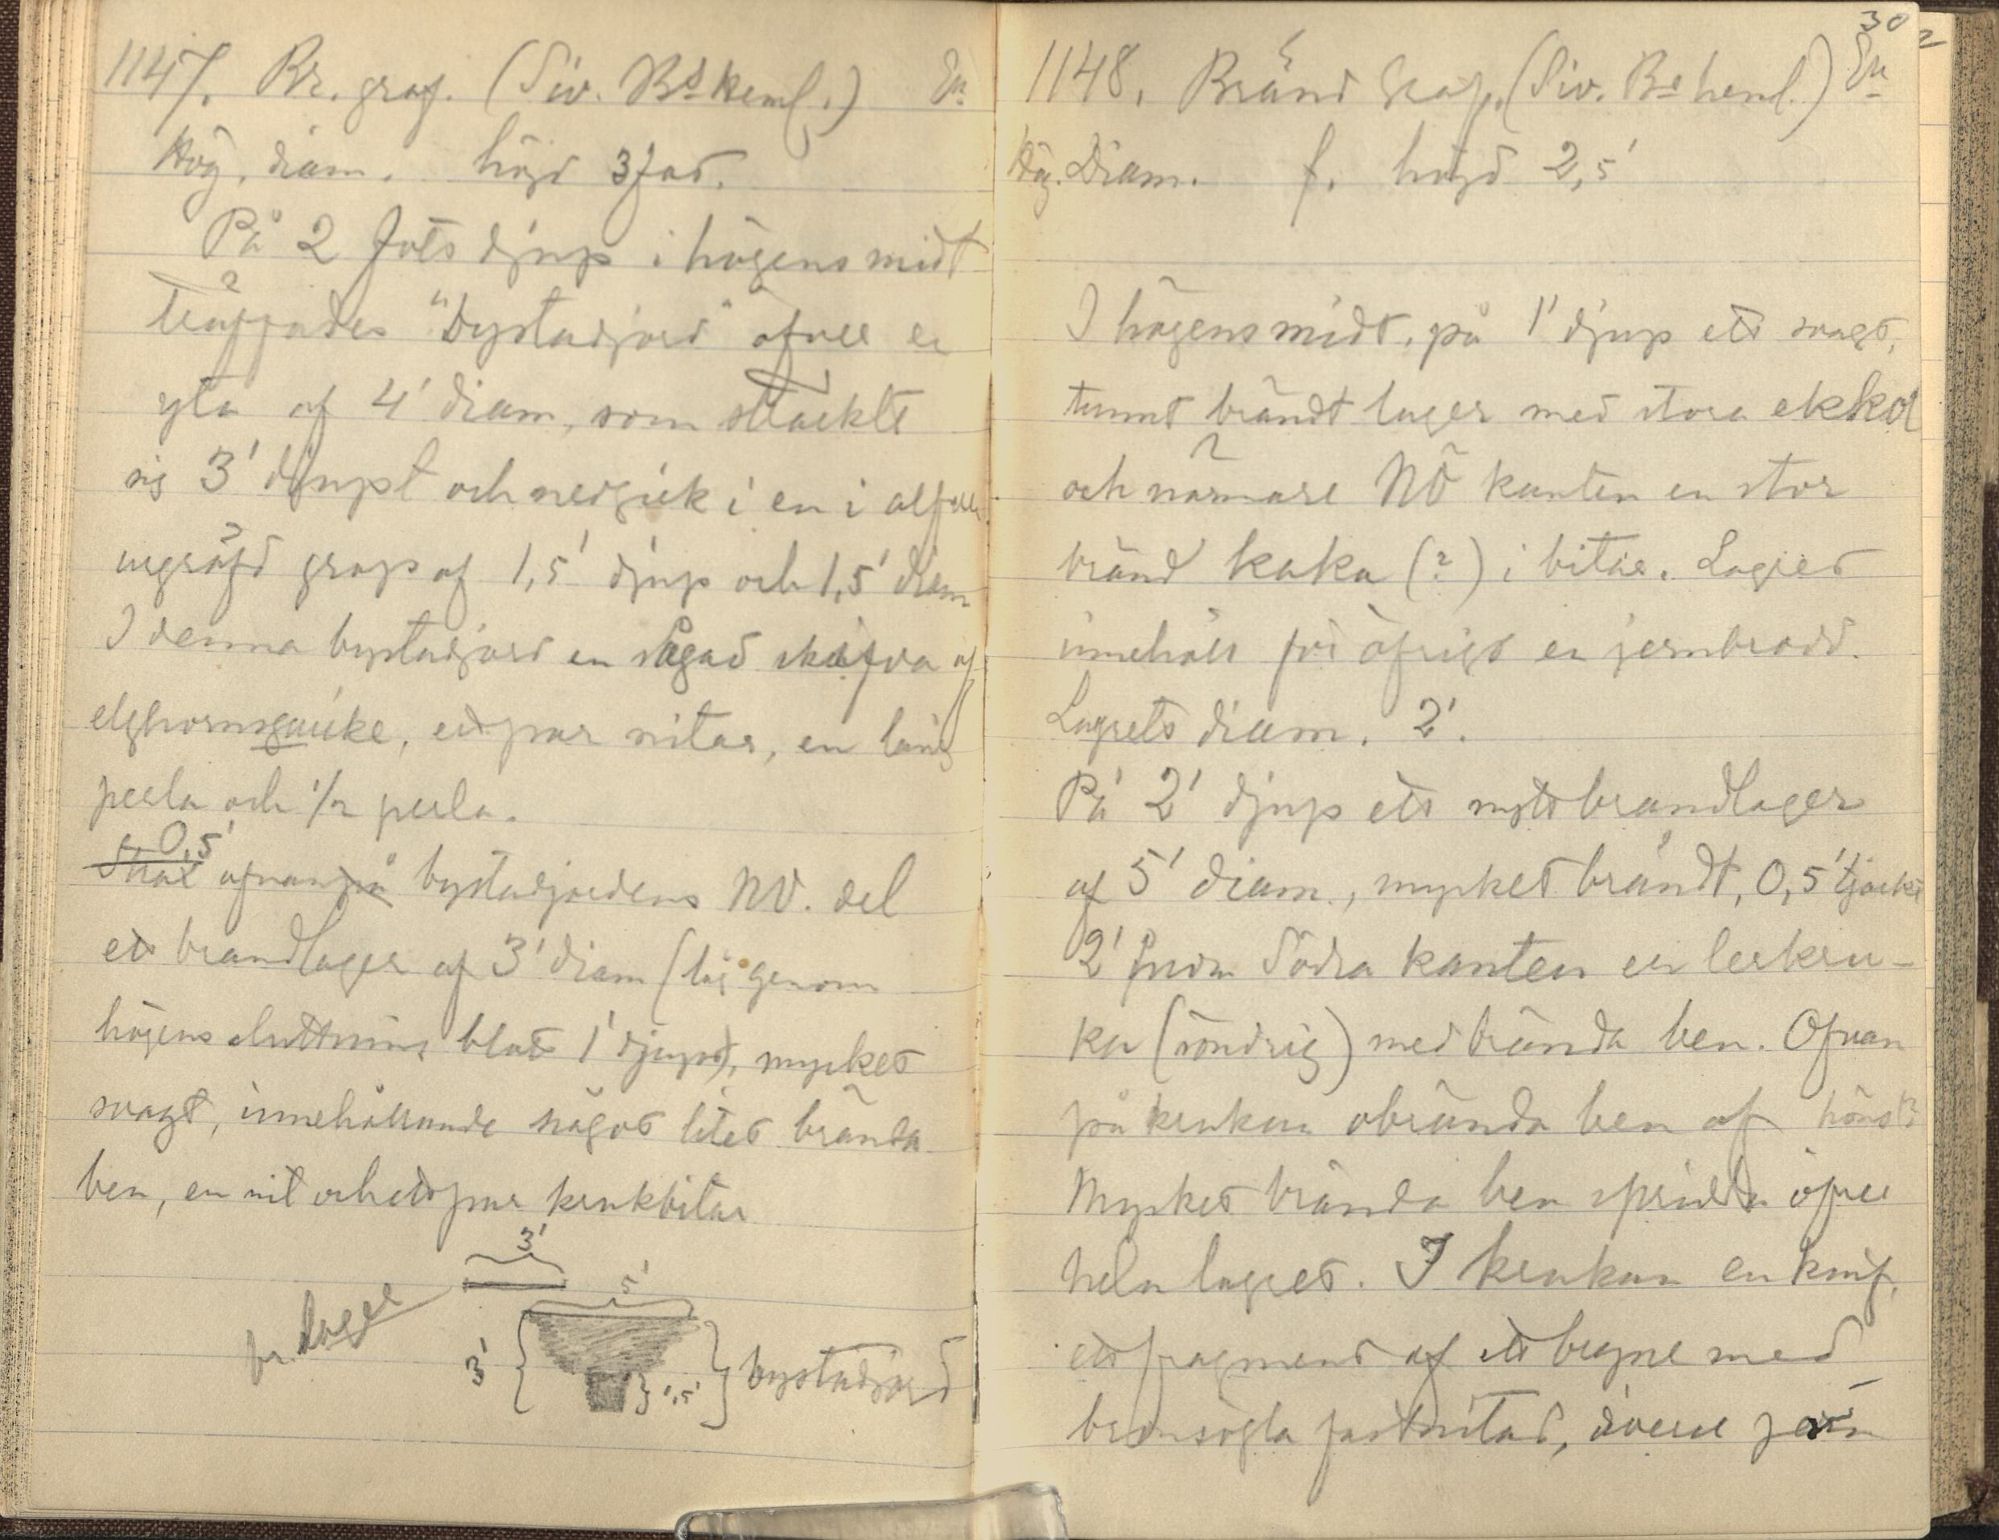 1147. Br. graf. (Siv. Bs heml.) En
Hög. diam. höjd 3 fot.
På 2 fots djup i högens midt
träffades "bystadjord" öfver en
yta af 4' diam, som sträckte
sig 3' djupt och nedgick i en i alfven
urgräfd grop af 1,5' djup och 1,5' diam
I denna bystadjord en sågad skifva af
elghornskrikе, ett par nitar, en lång
perla och 1/2 perla.
0,5'
ofvanpå bystadjordens NV. del
ett brandlager af 3' diam (låg genom
högens sluttning blott 1' djupt), mycket
svagt, innehållande något litet brända
ben, en nit och ett par krukbitar
3'
5'
br. lager
3' 1,5' bystadjord
30
2
1148. Bränd graf. (Siv. Bs heml.) En
Hög. Diam. f. höjd 2,5'
I högens midt, på 1' djup ett svagt,
tunnt brändt lager med stora ekkol
och närmare NÖ kanten en stor
bränd kaka (?) i bitar. Lagret
innehöll för öfrigt en jernbrodd.
Lagrets diam. 2'.
På 2' djup ett nytt brandlager
af 5' diam., mycket brändt, 0,5' tjockt
2' från Södra kanten en lerkru-
ka (söndrig) med brända ben. Ofvan
på krukan obrända ben af höns?
Mycket brända ben spridda öfver
hela lagret. I krukan en knif,
ett fragment af ett beyne med
bronsögla fastnitad, diverse jern